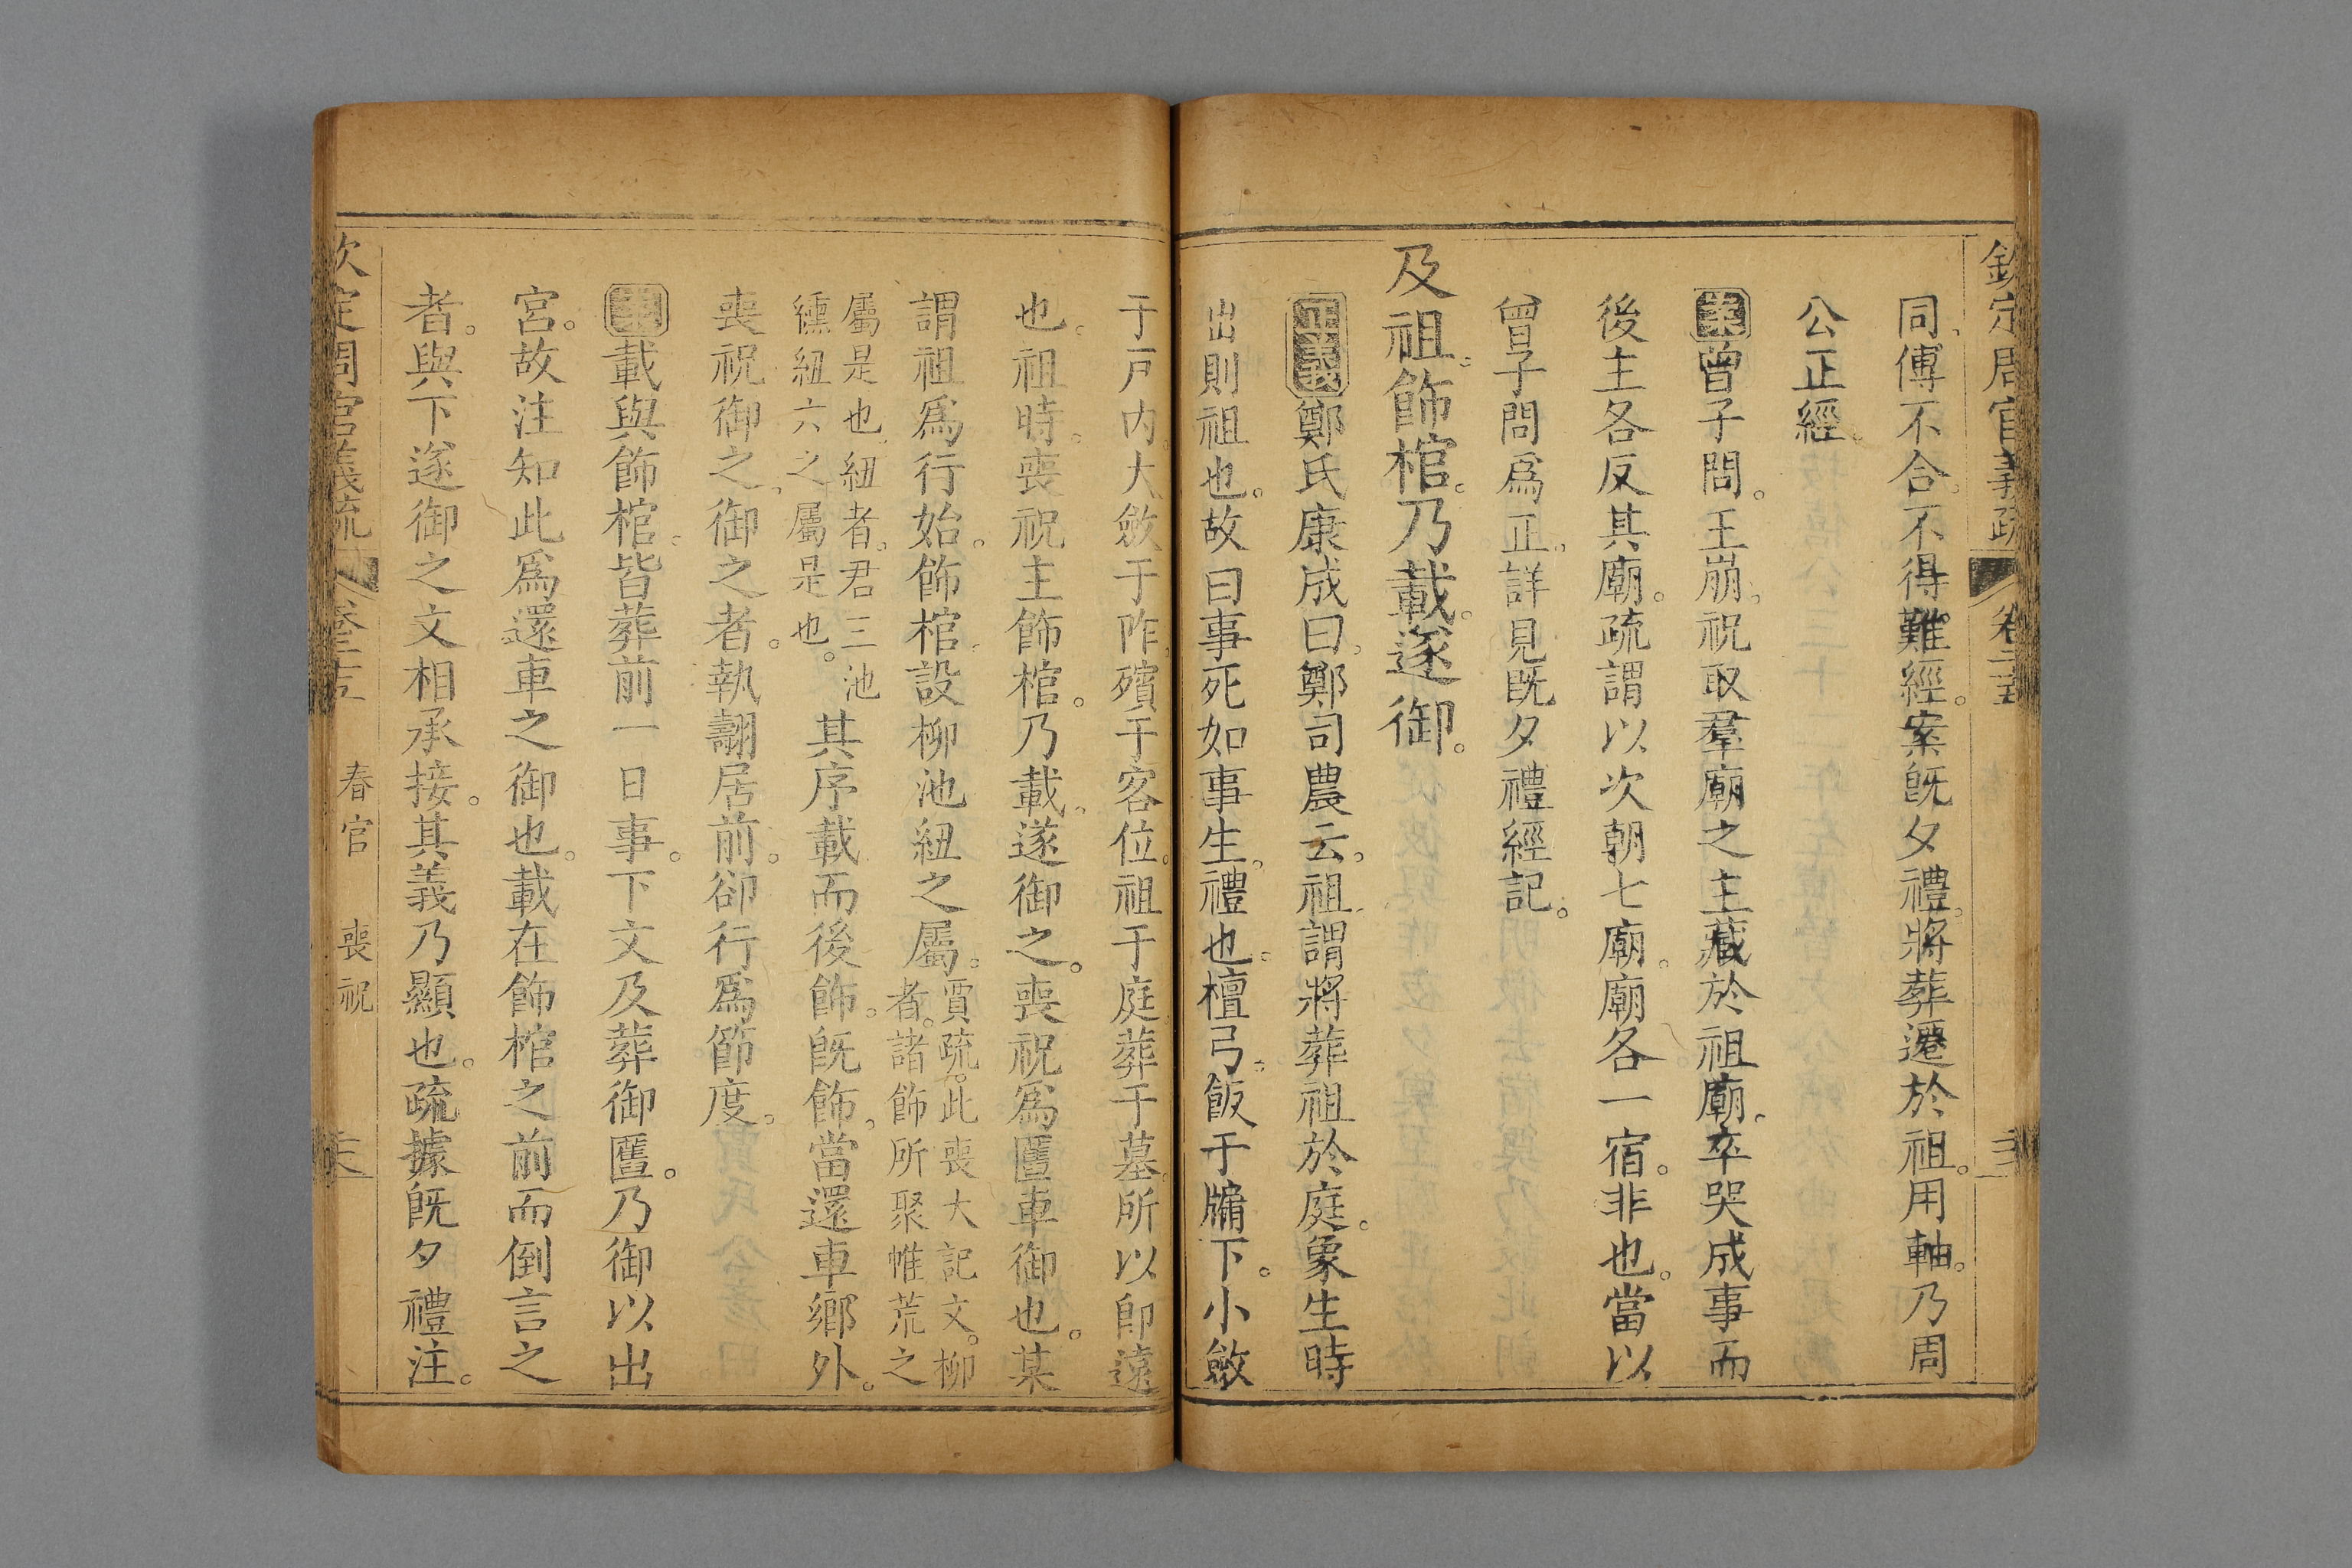 欽定周官義疏 卷二十五
同傳不合不得難經案旣夕禮將葬遷於祖用軸乃周
公正經
案曾子問王崩祝取羣廟之主藏於祖廟卒哭成事而
後主各反其廟疏謂以次朝七廟廟各一宿非也當以
曾子問爲正詳見旣夕禮經記
及祖飾棺乃載遂御
正義鄭氏康成曰鄭司農云祖謂將葬祖於庭象生時
出則祖也故曰事死如事生禮也檀弓飯于牖下小斂
于戸內大斂于阼殯于客位祖于庭葬于墓所以卽遠
也祖時喪祝主飾棺乃載遂御之喪祝爲匶車御也某
謂祖爲行始飾棺設柳池紐之屬
賈疏此喪大記文柳
者諸飾所聚帷荒之
屬是也紐者君三池
纁紐六之屬是也
其序載而後飾旣飾當還車鄉外
喪祝御之御之者執翿居前卻行爲節度
案載與飾棺皆葬前一日事下文及葬御匶乃御以出
宮故注知此爲還車之御也載在飾棺之前而倒言之
者與下遂御之文相承接其義乃顯也疏據旣夕禮注
欽定周官義疏 卷二十五 春官 喪祝